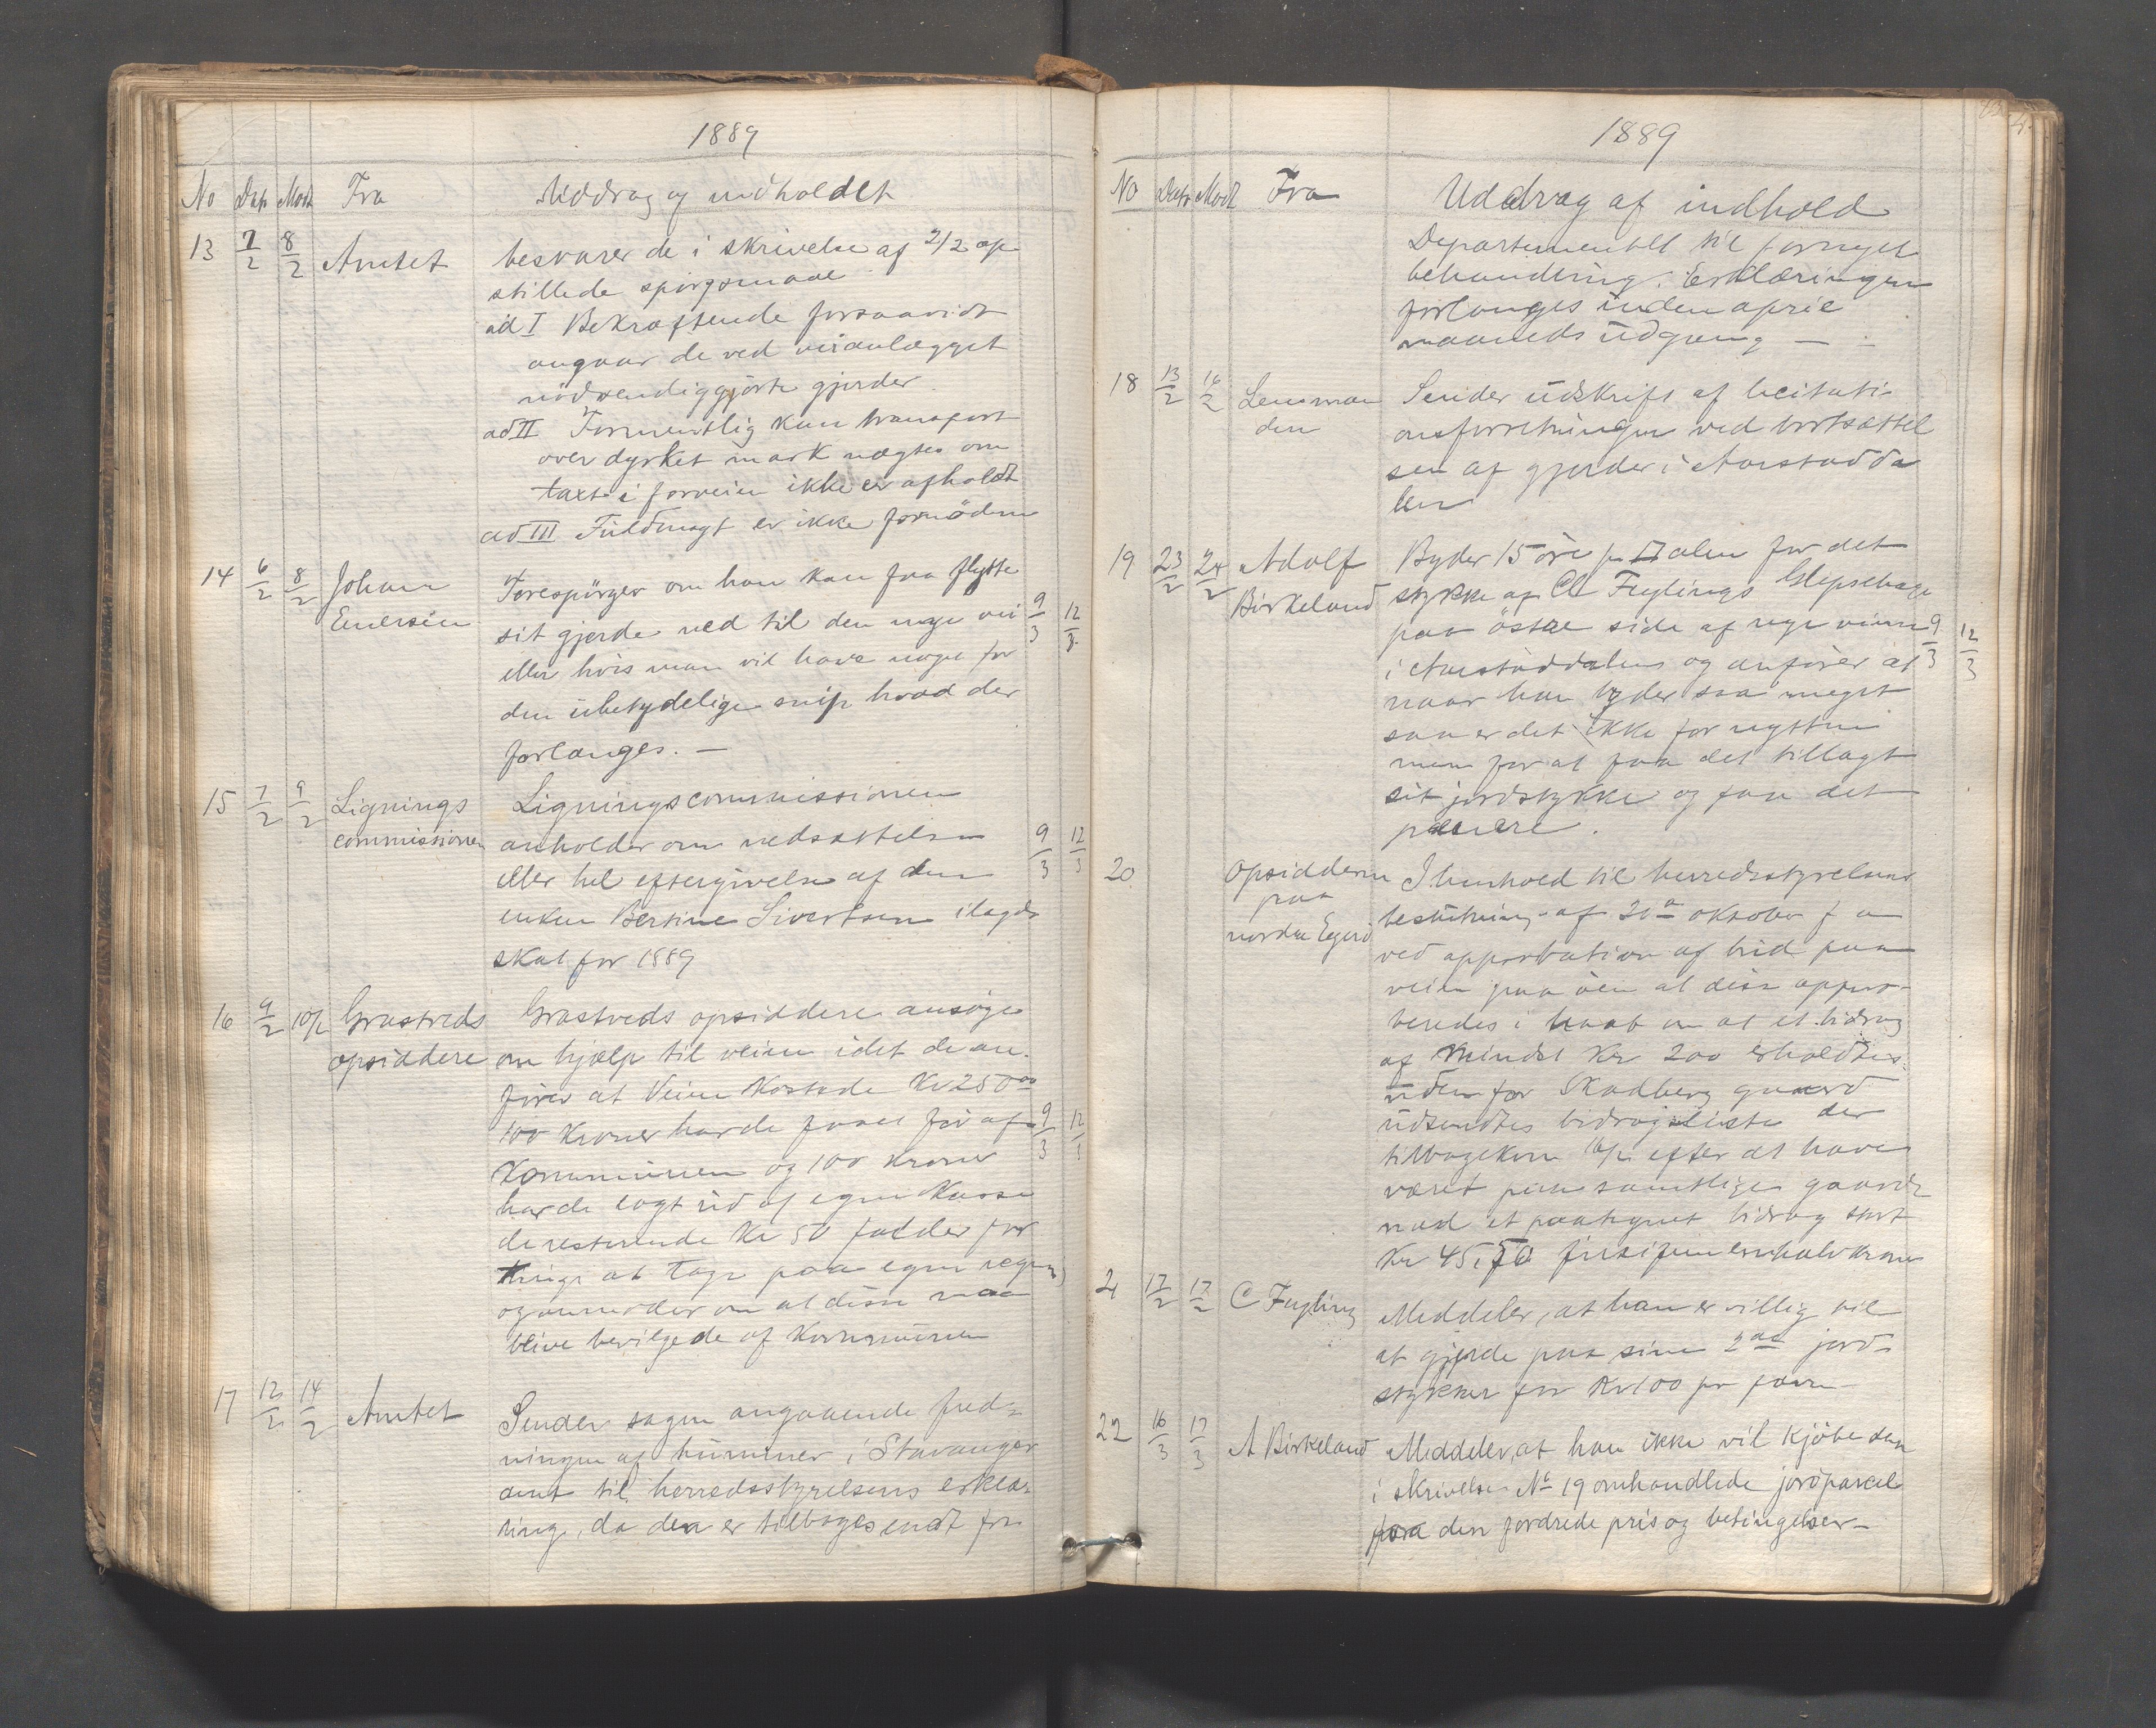 1889
No Dat Modt Fra Uddrag og indholdet
13 7/2 8/2 Amtet besvarer de i skrivelse af 2/2 op
stillede spörgsmaal
ad I Bekræftende forsaavidt
angaar de ved veianlægget
nödvendiggjorte gjerder
ad II Formentlig kan transport
over dyrket mark nægtes om
taxt i forveien ikke er afholdt
ad III Fuldmagt er ikke fornöden
14 6/2 8/2 Johan Enersen Forespörger om han kan faa flytte
sit gjerde ned til den nye vei 9/3 12/3
eller hvis man vil have noget for
den ubetydelige snip hvad der
forlanges. —
15 7/2 9/2 Lignings commissionen Ligningscommissionen
anholder om nedsættelse 9/3 12/3
eller hel eftergivelse af den
enken Bertine Sivertsen ilagde
skat for 1889
16 9/2 10/2 Grastveds opsiddere Grastveds opsiddere ansöge
om hjælp til veien idet de an-
förer at Veien kostede Kr 250 00
100 kroner havde faaet för af 9/3 12/3
Kommunen og 100 kroner
har de lagt ud af egen Kasse
de resterende Kr 50 falder for
tunge at tage paa egen regn
og anmoder om at disse maa
blive bevilgede af Kommunen
17 12/2 14/2 Amtet Sender sagen angaaende fred-
ningen af hummer i Stavanger
amt til herredsstyrelsens erklæ-
ring, da den er tilbagesendt fra
1889
No Dato Modt Fra Uddrag af indhold
Departementet til fornyet
behandling. Erklæringen
forlanges inden april
maaneds udgang —
18 13/2 16/2 Lensman den Sender udskrift af licitati-
onsforretningen ved bortsættel
sen af gjerder i Aarstadda
len
19 23/2 24/2 Adolf Birkeland Byder 15 öre pr □ alen for det
stykke af Cl Fuglings
paa östre side af nye veien 9/3 12/3
i Aarstaddalen og anförer at
naar han byder saa meget
saa er det ikke for nytten
men for at faa det tillagt
sit jordstykke og faa det
pænere.
20 Opsidderne paa nordre Egerö I henhold til herredsstyrelsens
beslutning af 20de oktober f a
ved approbation af bud paa
veien paa öen at disse appro-
beredes i haab om at et bidrag
af mindst Kr 200 erholdtes
uden for Skadberg gaard
udsendtes bidragsliste der
tilbagekom efter at have
været paa samtlige gaarde
med et paategnet bidrag stort
Kr 45,50 firtifem en halv krone
21 17/2 17/2 C Fugling Meddeler, at han er villig til
at gjerde paa sine 2de jord-
stykker for Kr 100 pr favn
22 16/3 17/3 A Birkeland Meddeler, at han ikke vil kjöbe den
i skrivelse No 19 omhandlede jordparcel
paa den fordrede pris og betingelser —